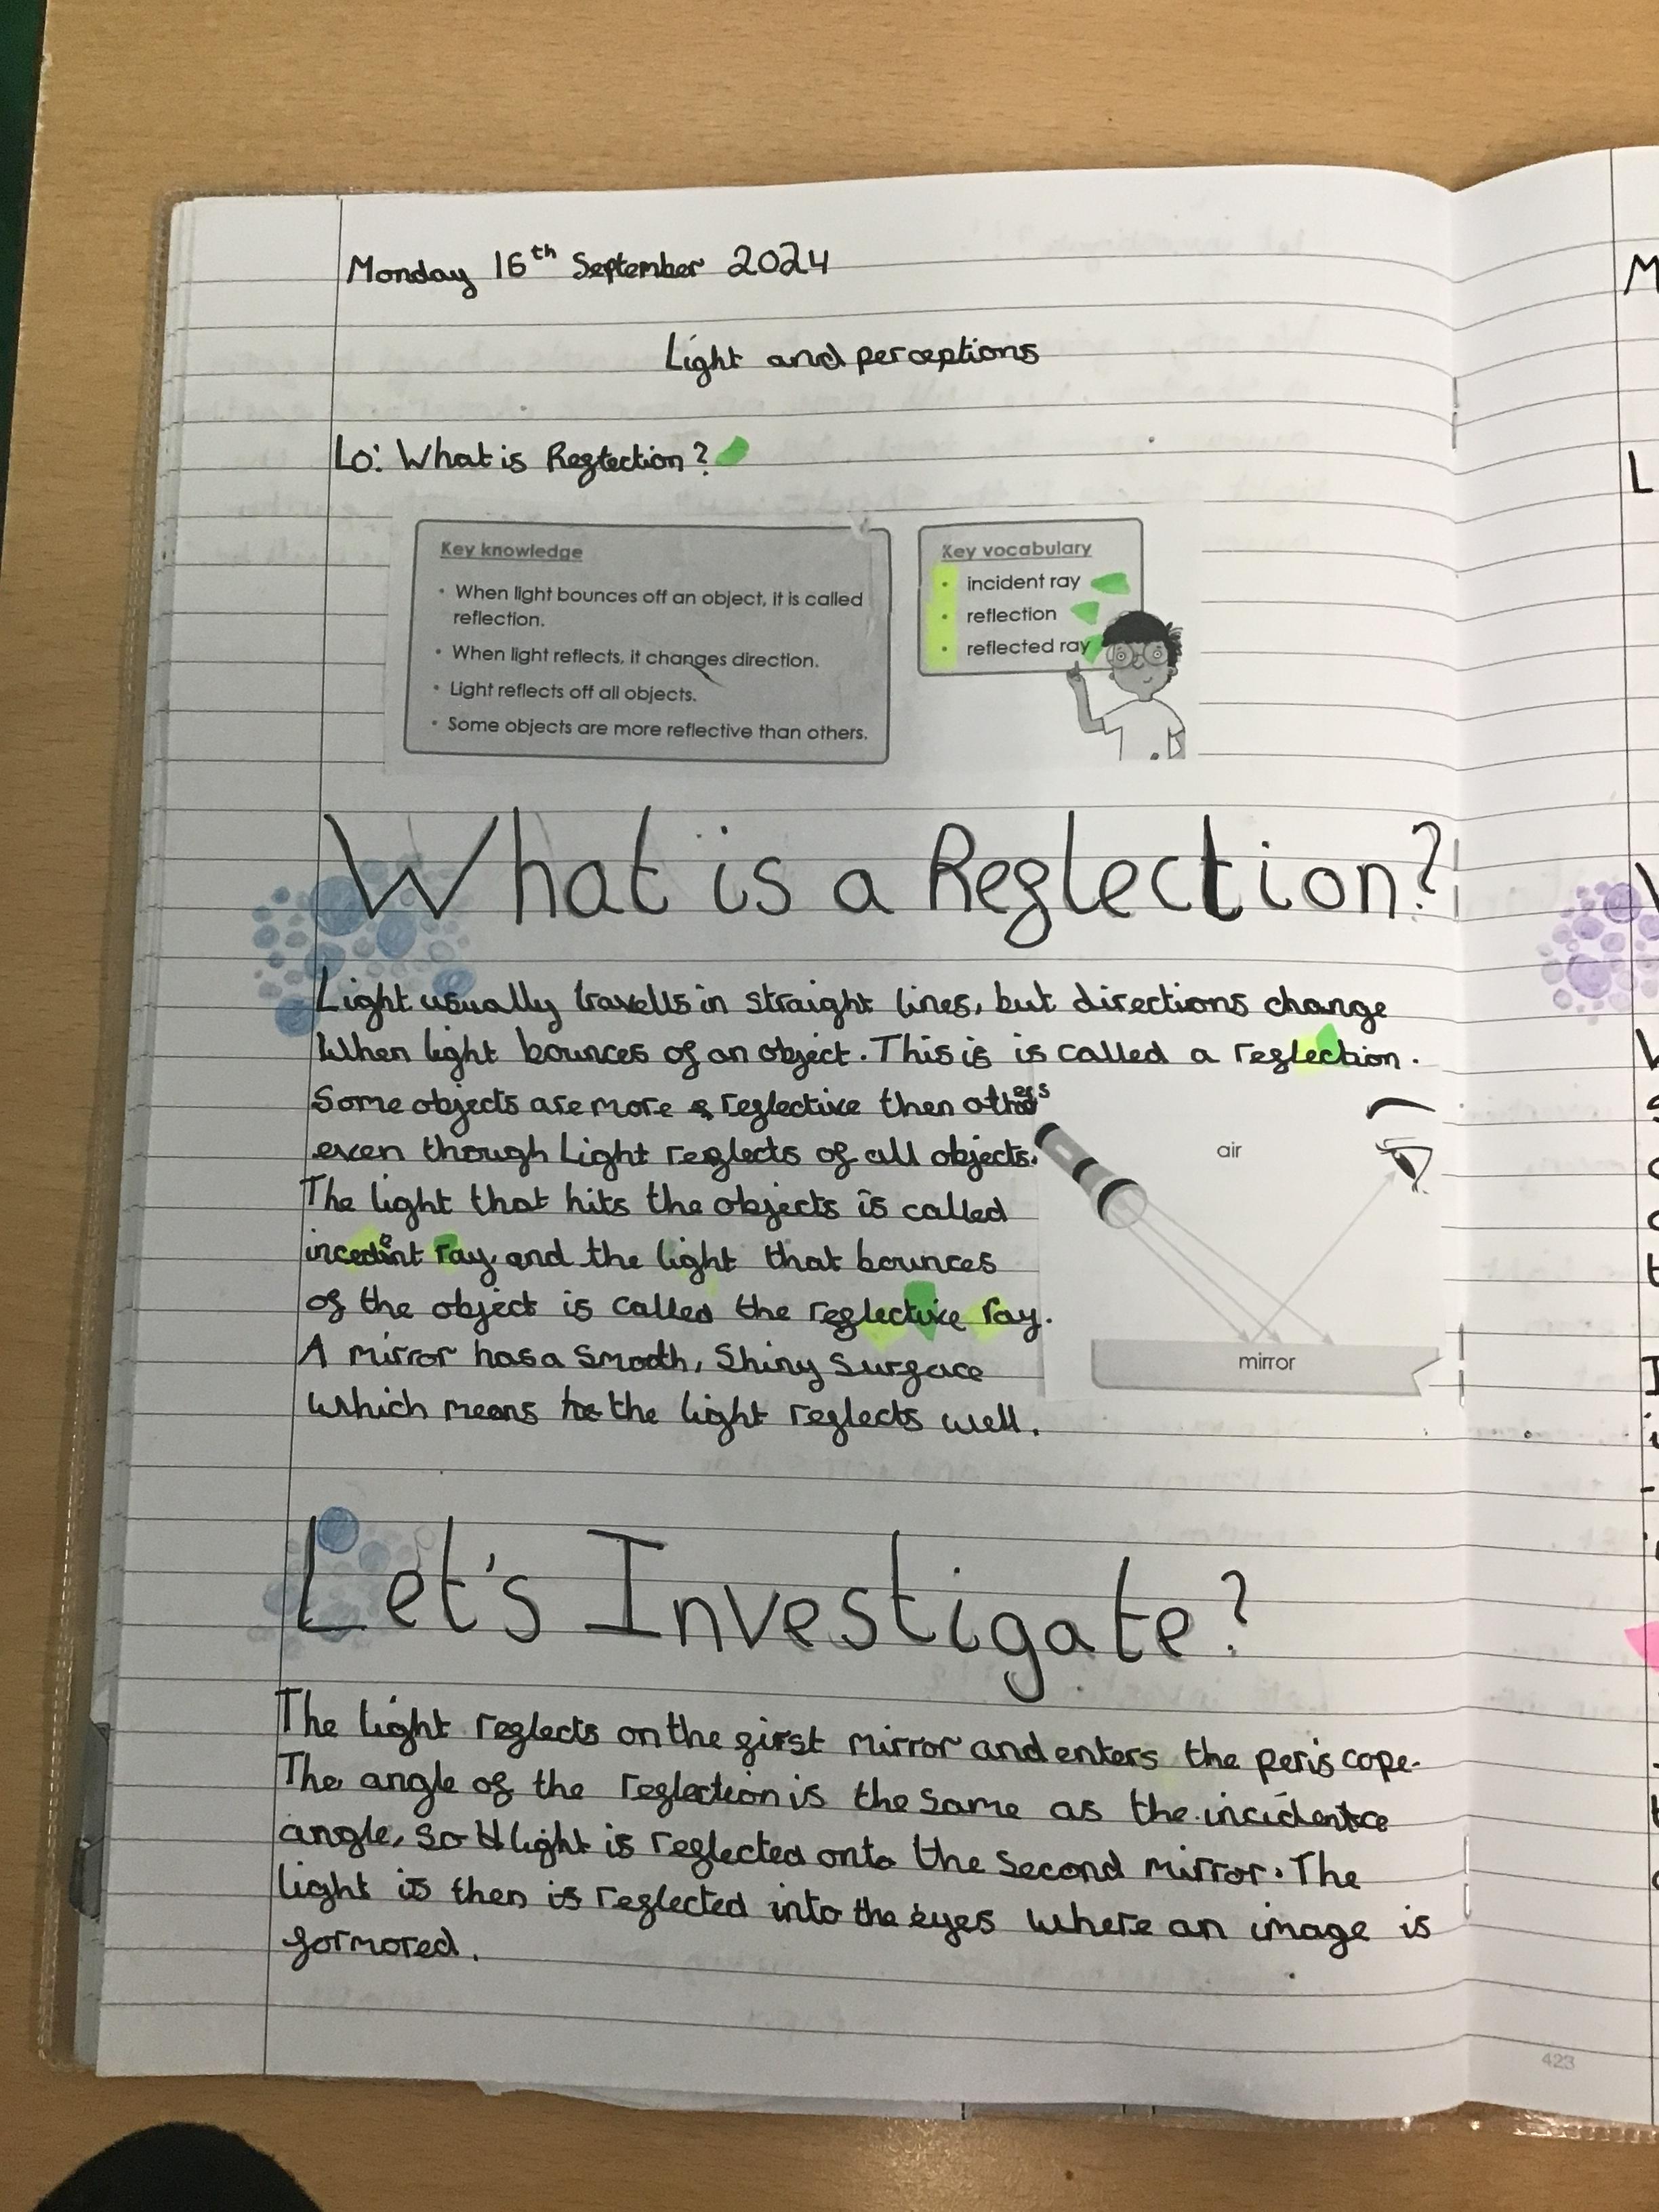 Monday 16th September 2024
Light and perceptions
Lo: What is Reflection?
Key knowledge
• When light bounces off an object, it is called
reflection.
• When light reflects, it changes direction.
• Light reflects off all objects.
• Some objects are more reflective than others.
Key vocabulary
• incident ray
• reflection
• reflected ray
What is a Reflection?
Light usually travells in straight lines, but directions change
When light bounces of an object. This is is called a reflection.
Some objects are more reflective then others
even though Light reflects of all objects.
The light that hits the objects is called
incedent ray and the light that bounces
of the object is called the reflective ray.
A mirror has a smooth, Shiny Surface
which means the light reflects well.
air
mirror
Let's Investigate?
The light reflects on the first mirror and enters the periscope.
The angle of the reflection is the same as the incidence
angle, so light is reflected onto the second mirror. The
light is then is reflected into the eyes where an image is
formored.
423
M
L